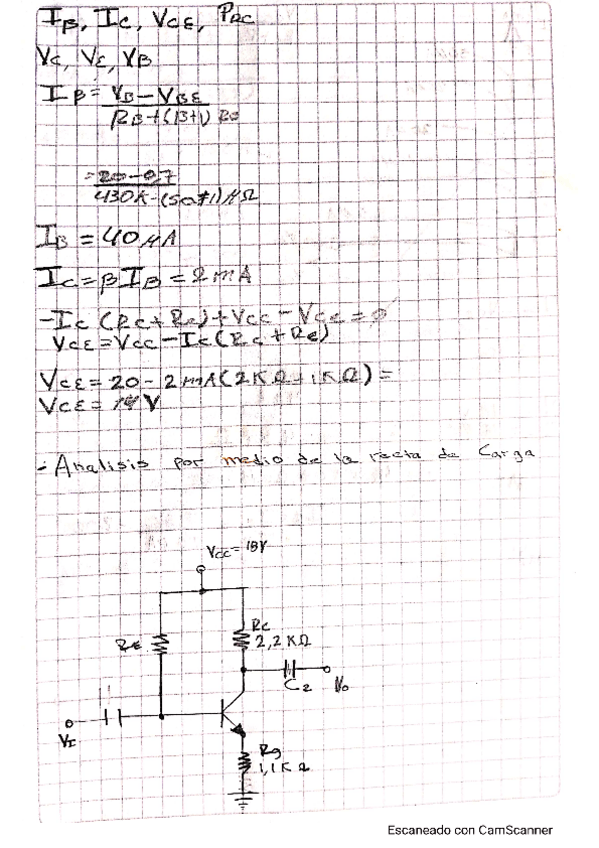 IB, IC, VCE, PRC
VC, VE, VB
IB = VB - VBE
RB + (B+1) Re
= 20 - 0.7
430K - (50+1) KΩ
IB = 40 µA
IC = β IB = 2 mA
-IC (RC + Re) + VCC - VCE = 0
VCE = VCC - IC (RC + Re)
VCE = 20 - 2 mA (2KΩ + 1KΩ) =
VCE = 14 V
- Analisis por medio de la recta de Carga
VCC = 18V
RC
2,2 KΩ
RE
C2
Vo
VI
Rg
1,1K Ω
Escaneado con CamScanner